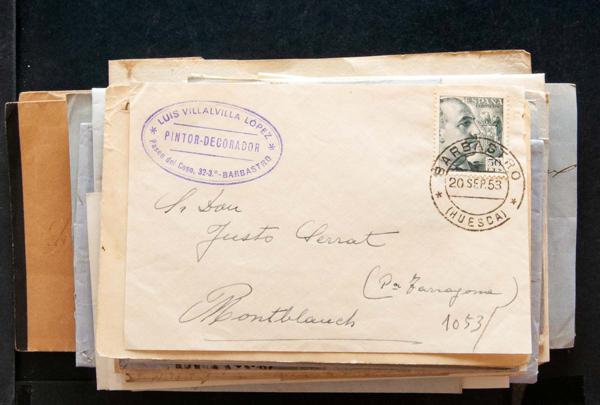 * LUIS VILLALVILLA LOPEZ *
PINTOR-DECORADOR
Paseo del Coso, 32-3.º - BARBASTRO
ESPAÑA
50
BARBASTRO
20 SEP. 53
* (HUESCA) *
Sr Don
Justo Serrat
(Pa Tarragona)
Montblanch
1053